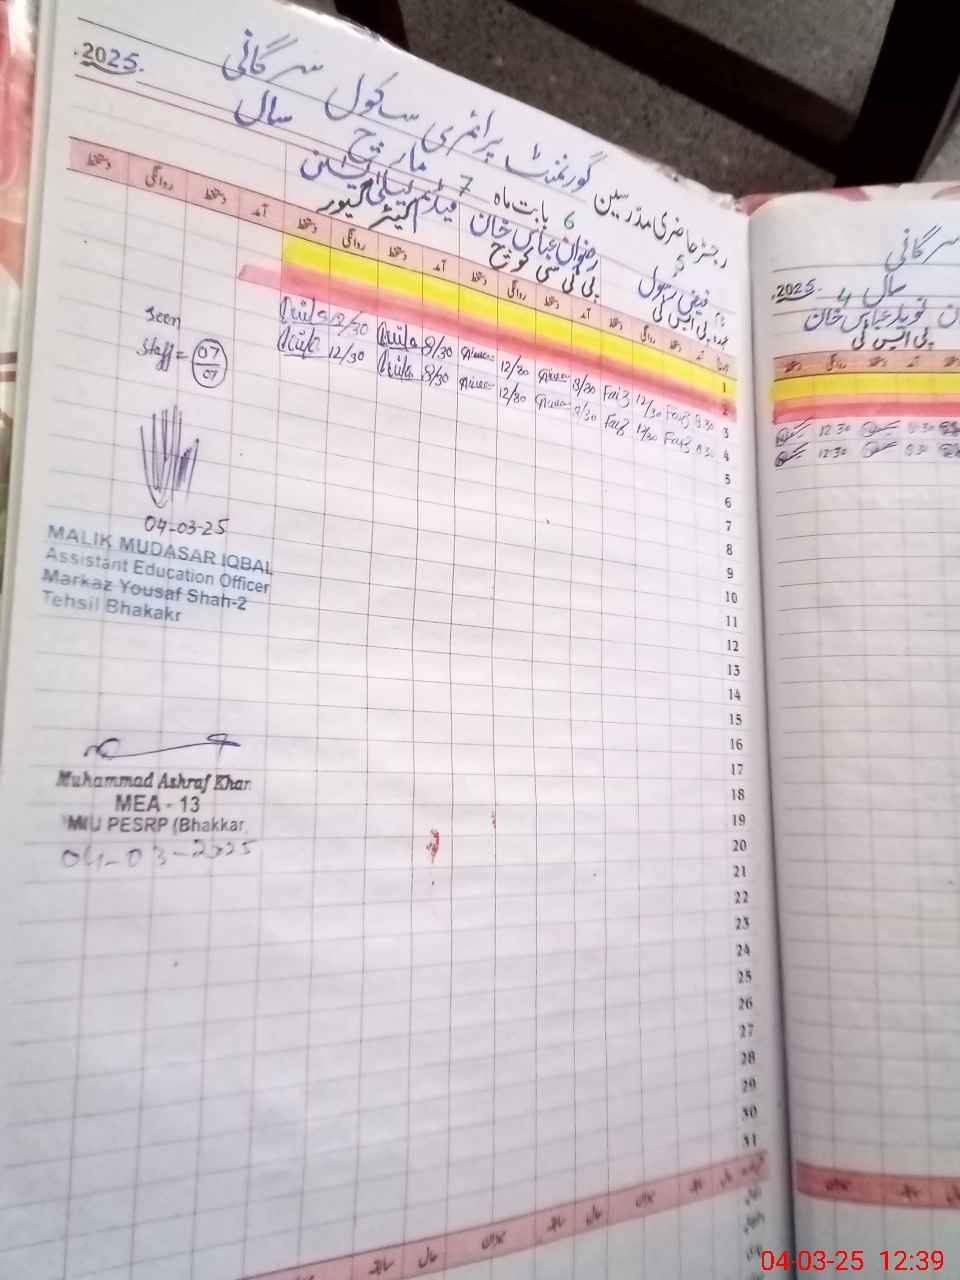 رجسٹر حاضری مدرسین گورنمنٹ پرائمری سکول سرگانی
بابت ماہ مارچ سال 2025.
5 6 7
فیض رسول
رضوان عباس خان
پی ایس ٹی
پی ٹی سی کوچ
کیئر گیور
آمد دستخط روانگی دستخط آمد دستخط روانگی دستخط آمد دستخط روانگی دستخط آمد دستخط روانگی دستخط
1
2
3
8/30 Faiz 12/30 Faiz 8/30 12/30 8/30 12/30
4
8/30 Faiz 12/30 Faiz 8/30 12/30 8/30 12/30
5
6
7
8
9
10
11
12
13
14
15
16
17
18
19
20
21
22
23
24
25
26
27
28
29
30
31
Seen
Staff = 07
07
04-03-25
MALIK MUDASAR IQBAL
Assistant Education Officer
Markaz Yousaf Shah-2
Tehsil Bhakakr
Muhammad Ashraf Khan
MEA - 13
M/U PESRP (Bhakkar
04-03-2025
سرگانی
سال 2025.
4
نوید عباس خان
پی ایس ٹی
12:30 8:30
12:30 8:30
04-03-25 12:39